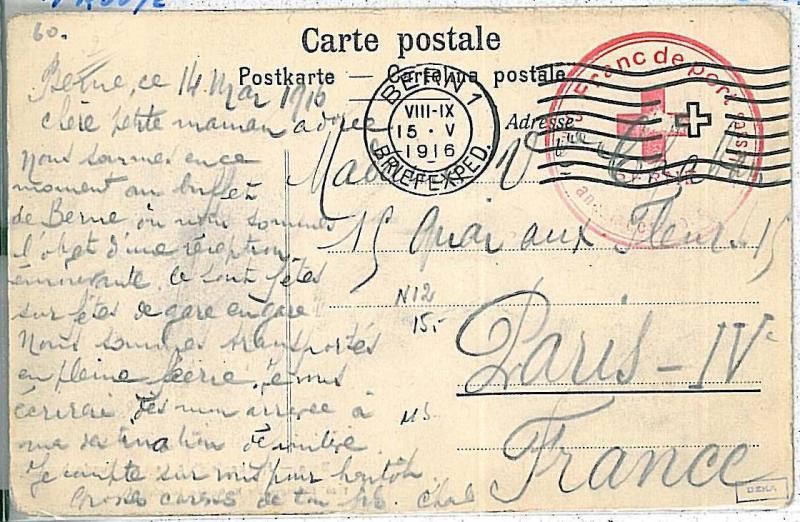 60.
Carte postale
Postkarte — Cartolina postale
Berne, ce 14 Mai 1916
Chère petite maman adorée
Nous sommes en ce
moment au buffet
de Berne, où nous sommes
l'objet d'une réception
émouvante. Ce sont fêtes
sur fêtes de gare en gare
Nous sommes transportés
en pleine féerie. Je vous
écrirai dès mon arrivée à
ma destination définitive.
Je compte sur vous pour
Grosses caresses de ton
BERN 1
VIII-IX
15 · V
1916
BRIEFEXPED.
Franc de port
Adresse
15 Quai aux Fleurs 15
N12
15.-
Paris - IVe
France
DEKA